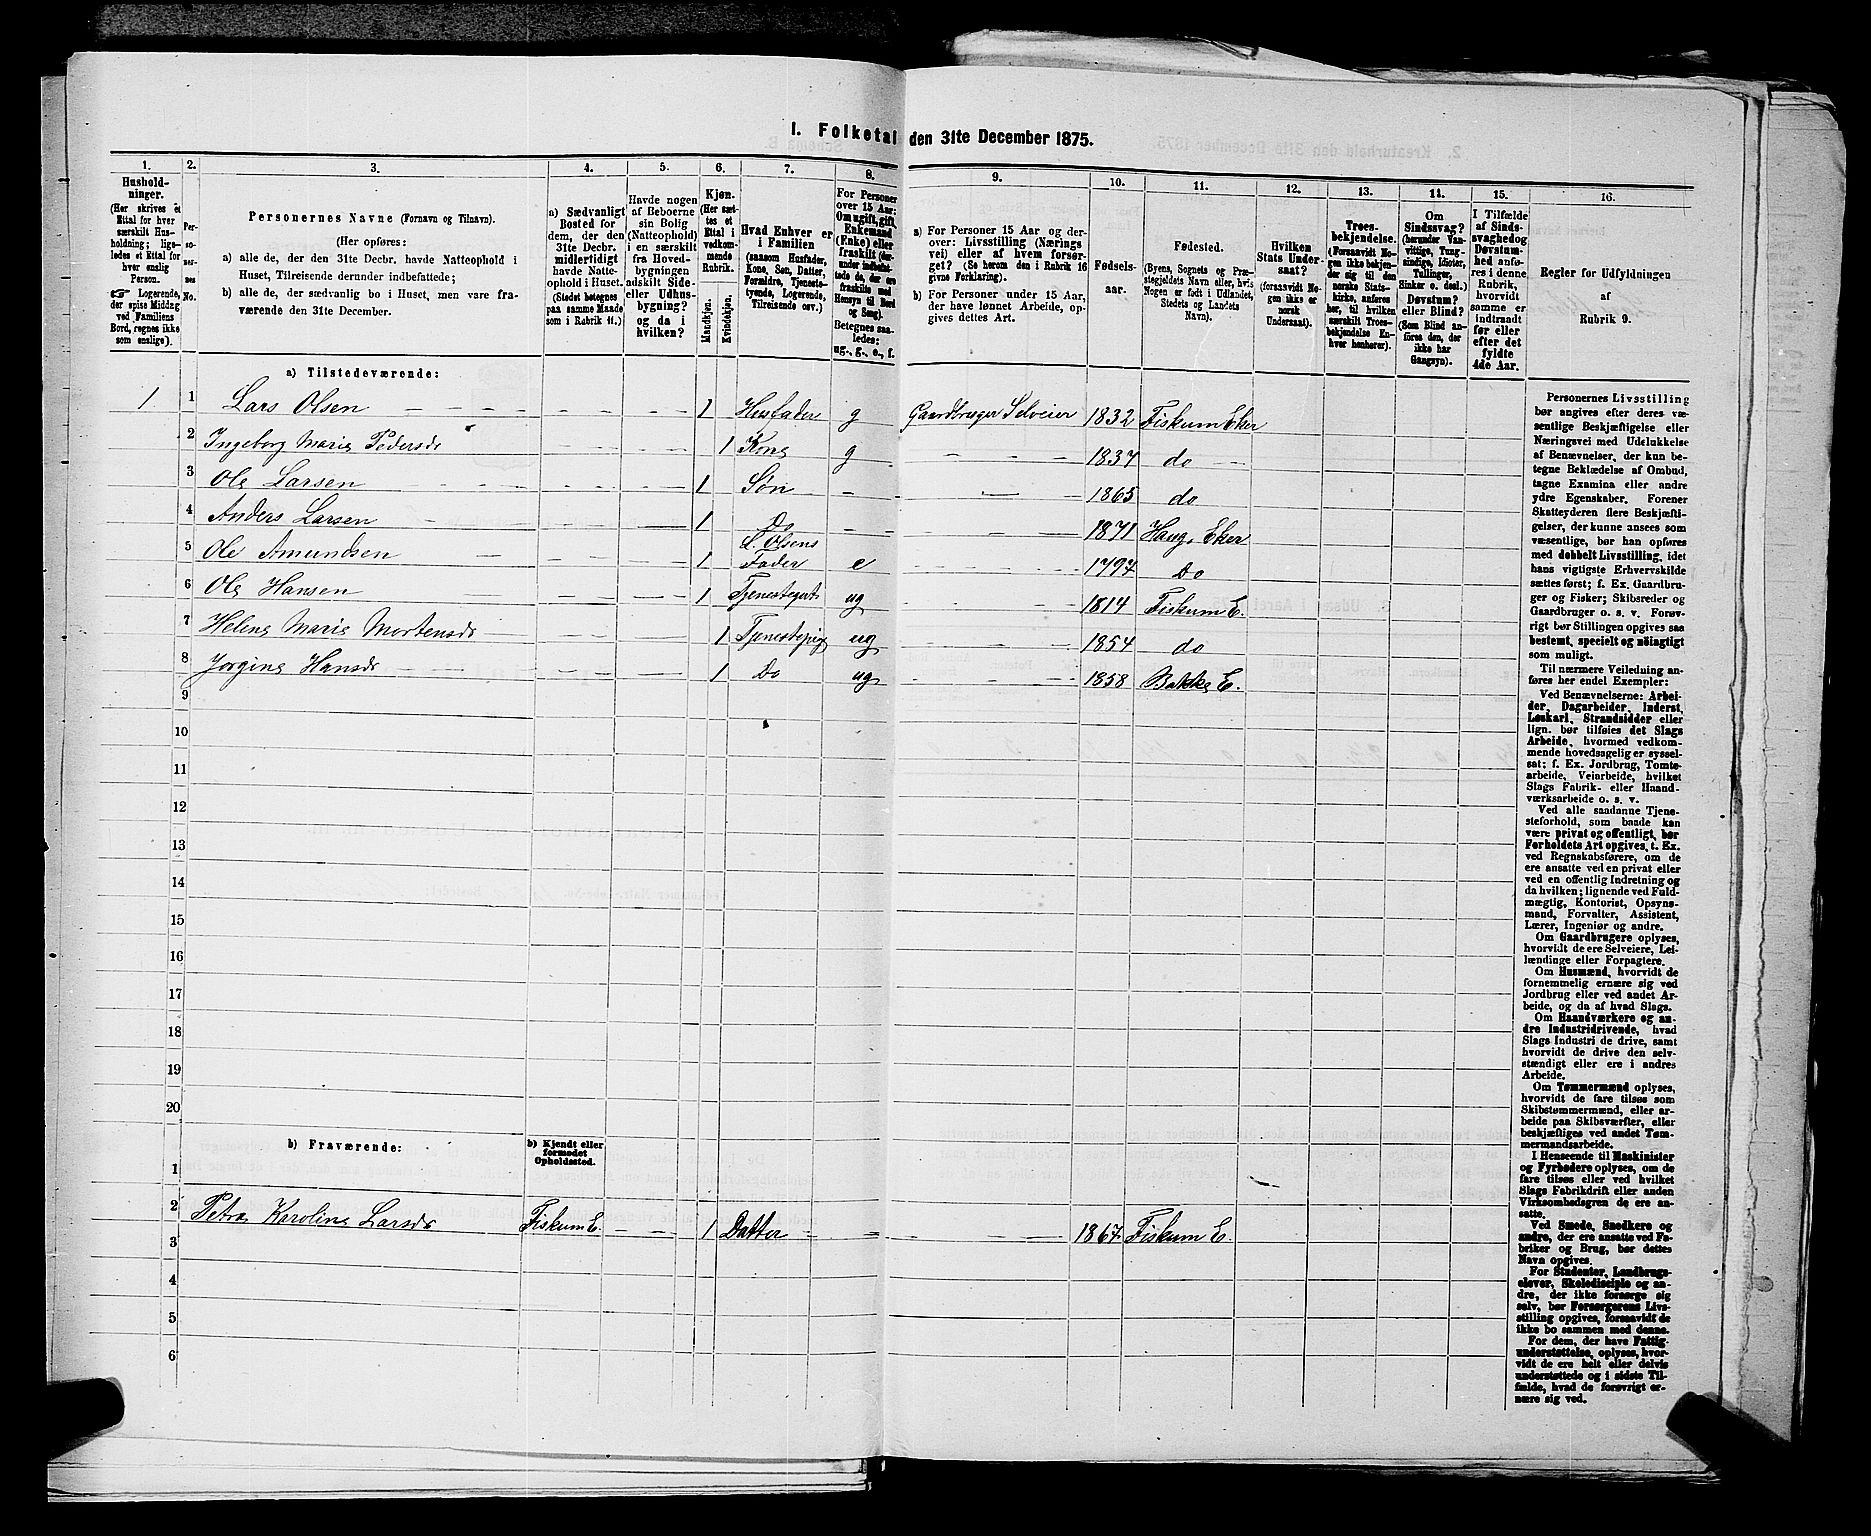 I. Folketal den 31te December 1875.
1. 2. 3. 4. 5. 6. 7. 8. 9. 10. 11. 12. 13. 14. 15. 16.
Hushold-
ninger.
(Her skrives et
Ettal for hver
særskilt Hus-
holdning; lige-
ledes et Ettal for
hver enslig
Person.
☞ Logerende,
der spise Middag
ved Familiens
Bord, regnes ikke
som enslige).
Per-
so-
ner-
nes
No.
Personernes Navne (Fornavn og Tilnavn).
(Her opføres:
a) alle de, der den 31te Decbr. havde Natteophold i
Huset, Tilreisende derunder indbefattede;
b) alle de, der sædvanlig bo i Huset, men vare fra-
værende den 31te December.
a) Sædvanligt
Bosted for
dem, der den
31te Decbr.
midlertidigt
havde Natte-
ophold i Huset.
(Stedet betegnes
paa samme Maade
som i Rubrik 11.)
Havde nogen
af Beboerne
sin Bolig
(Natteophold)
i en særskilt
fra Hoved-
bygningen
adskilt Side-
eller Udhus-
bygning?
og da i
hvilken?
Kjøn.
(Her sæt-
tes et
Ettal i
vedkom-
mende
Rubrik.
Mandkjøn.
Kvindekjøn.
Hvad Enhver er
i Familien
(saasom Husfader,
Kone, Søn, Datter,
Forældre, Tjeneste-
tyende, Logerende,
Tilreisende osv.)
For Personer
over 15 Aar:
Om ugift, gift,
Enkemand
(Enke) eller
fraskilt (der-
under indbefat-
tede de, der ere
fraskilte med
Hensyn til Bord
og Seng).
Betegnes saa-
ledes:
ug., g., e., f.
a) For Personer 15 Aar og der-
over: Livsstilling (Nærings
vei) eller af hvem forsør-
get? (Se herom den i Rubrik 16
givne Forklaring).
b) For Personer under 15 Aar,
der have lønnet Arbeide, op-
gives dettes Art.
Fødsels-
aar.
Fødested.
(Byens, Sognets og Præ-
stegjeldets Navn eller, hvis
Nogen er født i Udlandet,
Stedets og Landets
Navn).
Hvilken
Stats Under-
saat?
(forsaavidt No-
gen ikke er
norsk
Undersaat).
Troes-
bekjendelse.
(Forsaavidt No-
gen ikke bekjen-
der sig til den
norske Stats-
kirke, anføres
her, til hvilken
særskilt Troes-
bekjendelse En-
hver henhører).
Om
Sindssvag?
(herunder Van-
vittige, Tung-
sindige, Idioter,
Tullinger,
Sinker o. desl.)
Døvstum?
eller Blind?
(Som Blind an-
føres den, der
ikke har
Gangsyn).
I Tilfælde
af Sinds-
svaghed og
Døvstum-
hed anfø-
res i denne
Rubrik,
hvorvidt
samme er
indtraadt
før eller
efter det
fyldte
4de Aar.
Regler før Udfyldningen
af
Rubrik 9.
a) Tilstedeværende:
1 1 Lars Olsen 1 Husfader g Gaardbruger Selveier 1832 Fiskum Eker
2 Ingeborg Marie Pedersdr 1 Kone g 1837 do
3 Ole Larsen 1 Søn 1865 do
4 Anders Larsen 1 Do 1871 Haug, Eker
5 Ole Amundsen 1 L. Olsens Fader e 1797 Do
6 Ole Hansen 1 Tjenestegut ug 1814 Fiskum E.
7 Helene Marie Mortensdr 1 Tjenestepige ug 1854 do
8 Jorgine Hansdr 1 Do ug 1858 Bakke E.
9
10
11
12
13
14
15
16
17
18
19
20
b) Fraværende:
b) Kjendt eller
formodet
Opholdssted.
1
2 Petra Karoline Larsdr Fiskum E. 1 Datter 1867 Fiskum E.
3
4
5
6
Personernes Livsstilling
bør angives efter deres væ-
sentlige Beskjæftigelse eller
Næringsvei med Udelukkelse
af Benævnelser, der kun be-
tegne Beklædelse af Ombud,
tagne Examina eller andre
ydre Egenskaber. Forener
Skatteyderen flere Beskjæfti-
gelser, der kunne ansees som
væsentlige, bør han opføres
med dobbelt Livsstilling, idet
hans vigtigste Erhvervskilde
sættes først; f. Ex. Gaardbru-
ger og Fisker; Skibsreder og
Gaardbruger o. s. v. Forøv-
rigt bør Stillingen opgives saa
bestemt, specielt og nøiagtigt
som muligt.
Til nærmere Veiledning an-
føres her endel Exempler:
Ved Benævnelserne: Arbei-
der, Dagarbeider, Inderst,
Løskarl, Strandsidder eller
lign. bør tilføies det Slags
Arbeide, hvormed vedkom-
mende hovedsagelig er syssel-
sat; f. Ex. Jordbrug, Tomte-
arbeide, Veiarbeide, hvilket
Slags Fabrik- eller Haand-
værksarbeide o. s. v.
Ved alle saadanne Tjene-
steforhold, som baade kan
være privat og offentligt, bør
Forholdets Art opgives, t. Ex.
ved Regnskabsførere, om de
ere ansatte ved en privat eller
ved en offentlig Indretning og
da hvilken; lignende ved Fuld-
mægtig, Kontorist, Opsyns-
mand, Forvalter, Assistent,
Lærer, Ingeniør og andre.
Om Gaardbrugere oplyses,
hvorvidt de ere Selveiere, Lei-
lændinge eller Forpagtere.
Om Husmænd, hvorvidt de
fornemmelig ernære sig ved
Jordbrug eller ved andet Ar-
beide, og da af hvad Slags.
Om Haandværkere og an-
dre Industridrivende, hvad
Slags Industri de drive, samt
hvorvidt de drive den selv-
stændigt eller ere i andres
Arbeide.
Om Tømmermænd oplyses,
hvorvidt de fare tilsøs som
Skibstømmermænd, eller ar-
beide paa Skibsværfter, eller
beskjæftiges ved andet Tøm-
mermandsarbeide.
I Henseende til Maskinister
og Fyrbødere oplyses, om de
fare tilsøs eller ved hvilket
Slags Fabrikdrift eller anden
Virksomhedsgren de ere an-
satte.
Ved Smede, Snedkere og
andre, der ere ansatte ved Fa-
briker og Brug, bør dettes
Navn opgives.
For Studenter, Landbrugs-
elever, Skoledisciple og an-
dre, der ikke forsørge sig
selv, bør Forsørgerens Livs-
stilling opgives, forsaavidt de
ikke bo sammen med denne.
For dem, der have Fattig-
understøttelse, oplyses, hvor-
vidt de ere helt eller delvis
understøttede og i sidste Til-
fælde, hvad de forøvrigt er-
nære sig ved.